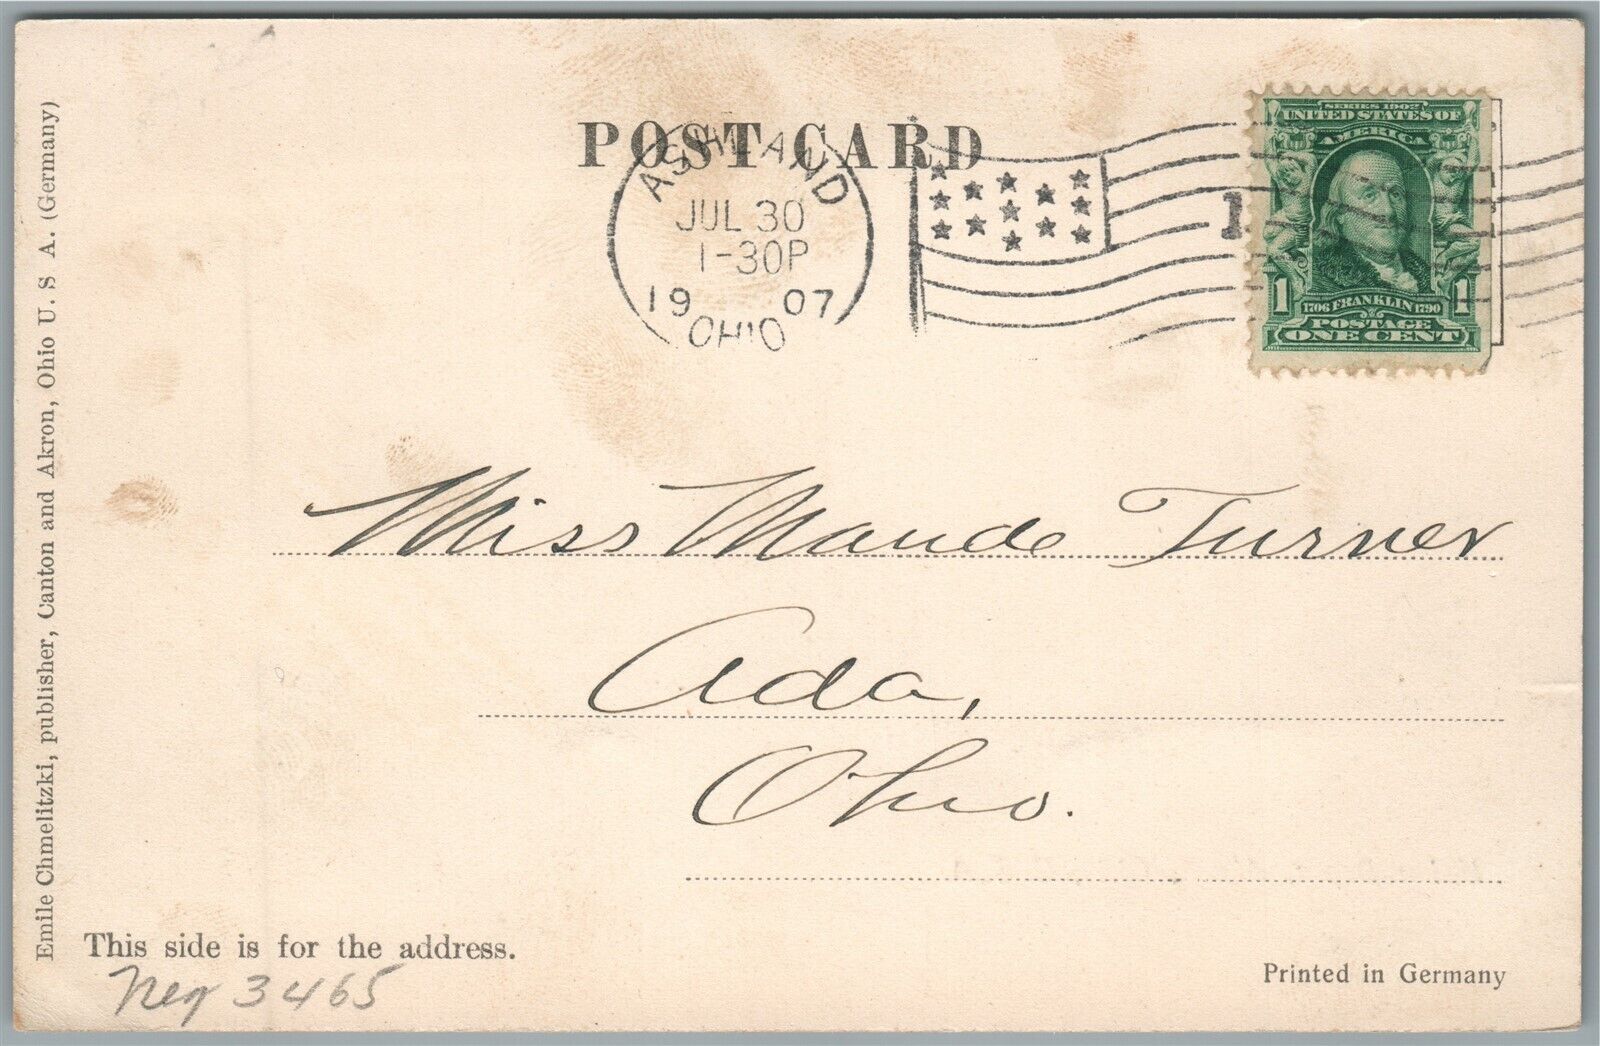 POST CARD
ASHLAND
JUL 30
1-30P
1907
OHIO
1
SERIES 1902
UNITED STATES OF
AMERICA
1 1706 FRANKLIN 1790 1
POSTAGE
ONE CENT
Miss Maude Turner
Ada,
Ohio.
Emile Chmelitzki, publisher, Canton and Akron, Ohio U. S A. (Germany)
This side is for the address.
Neg 3465
Printed in Germany